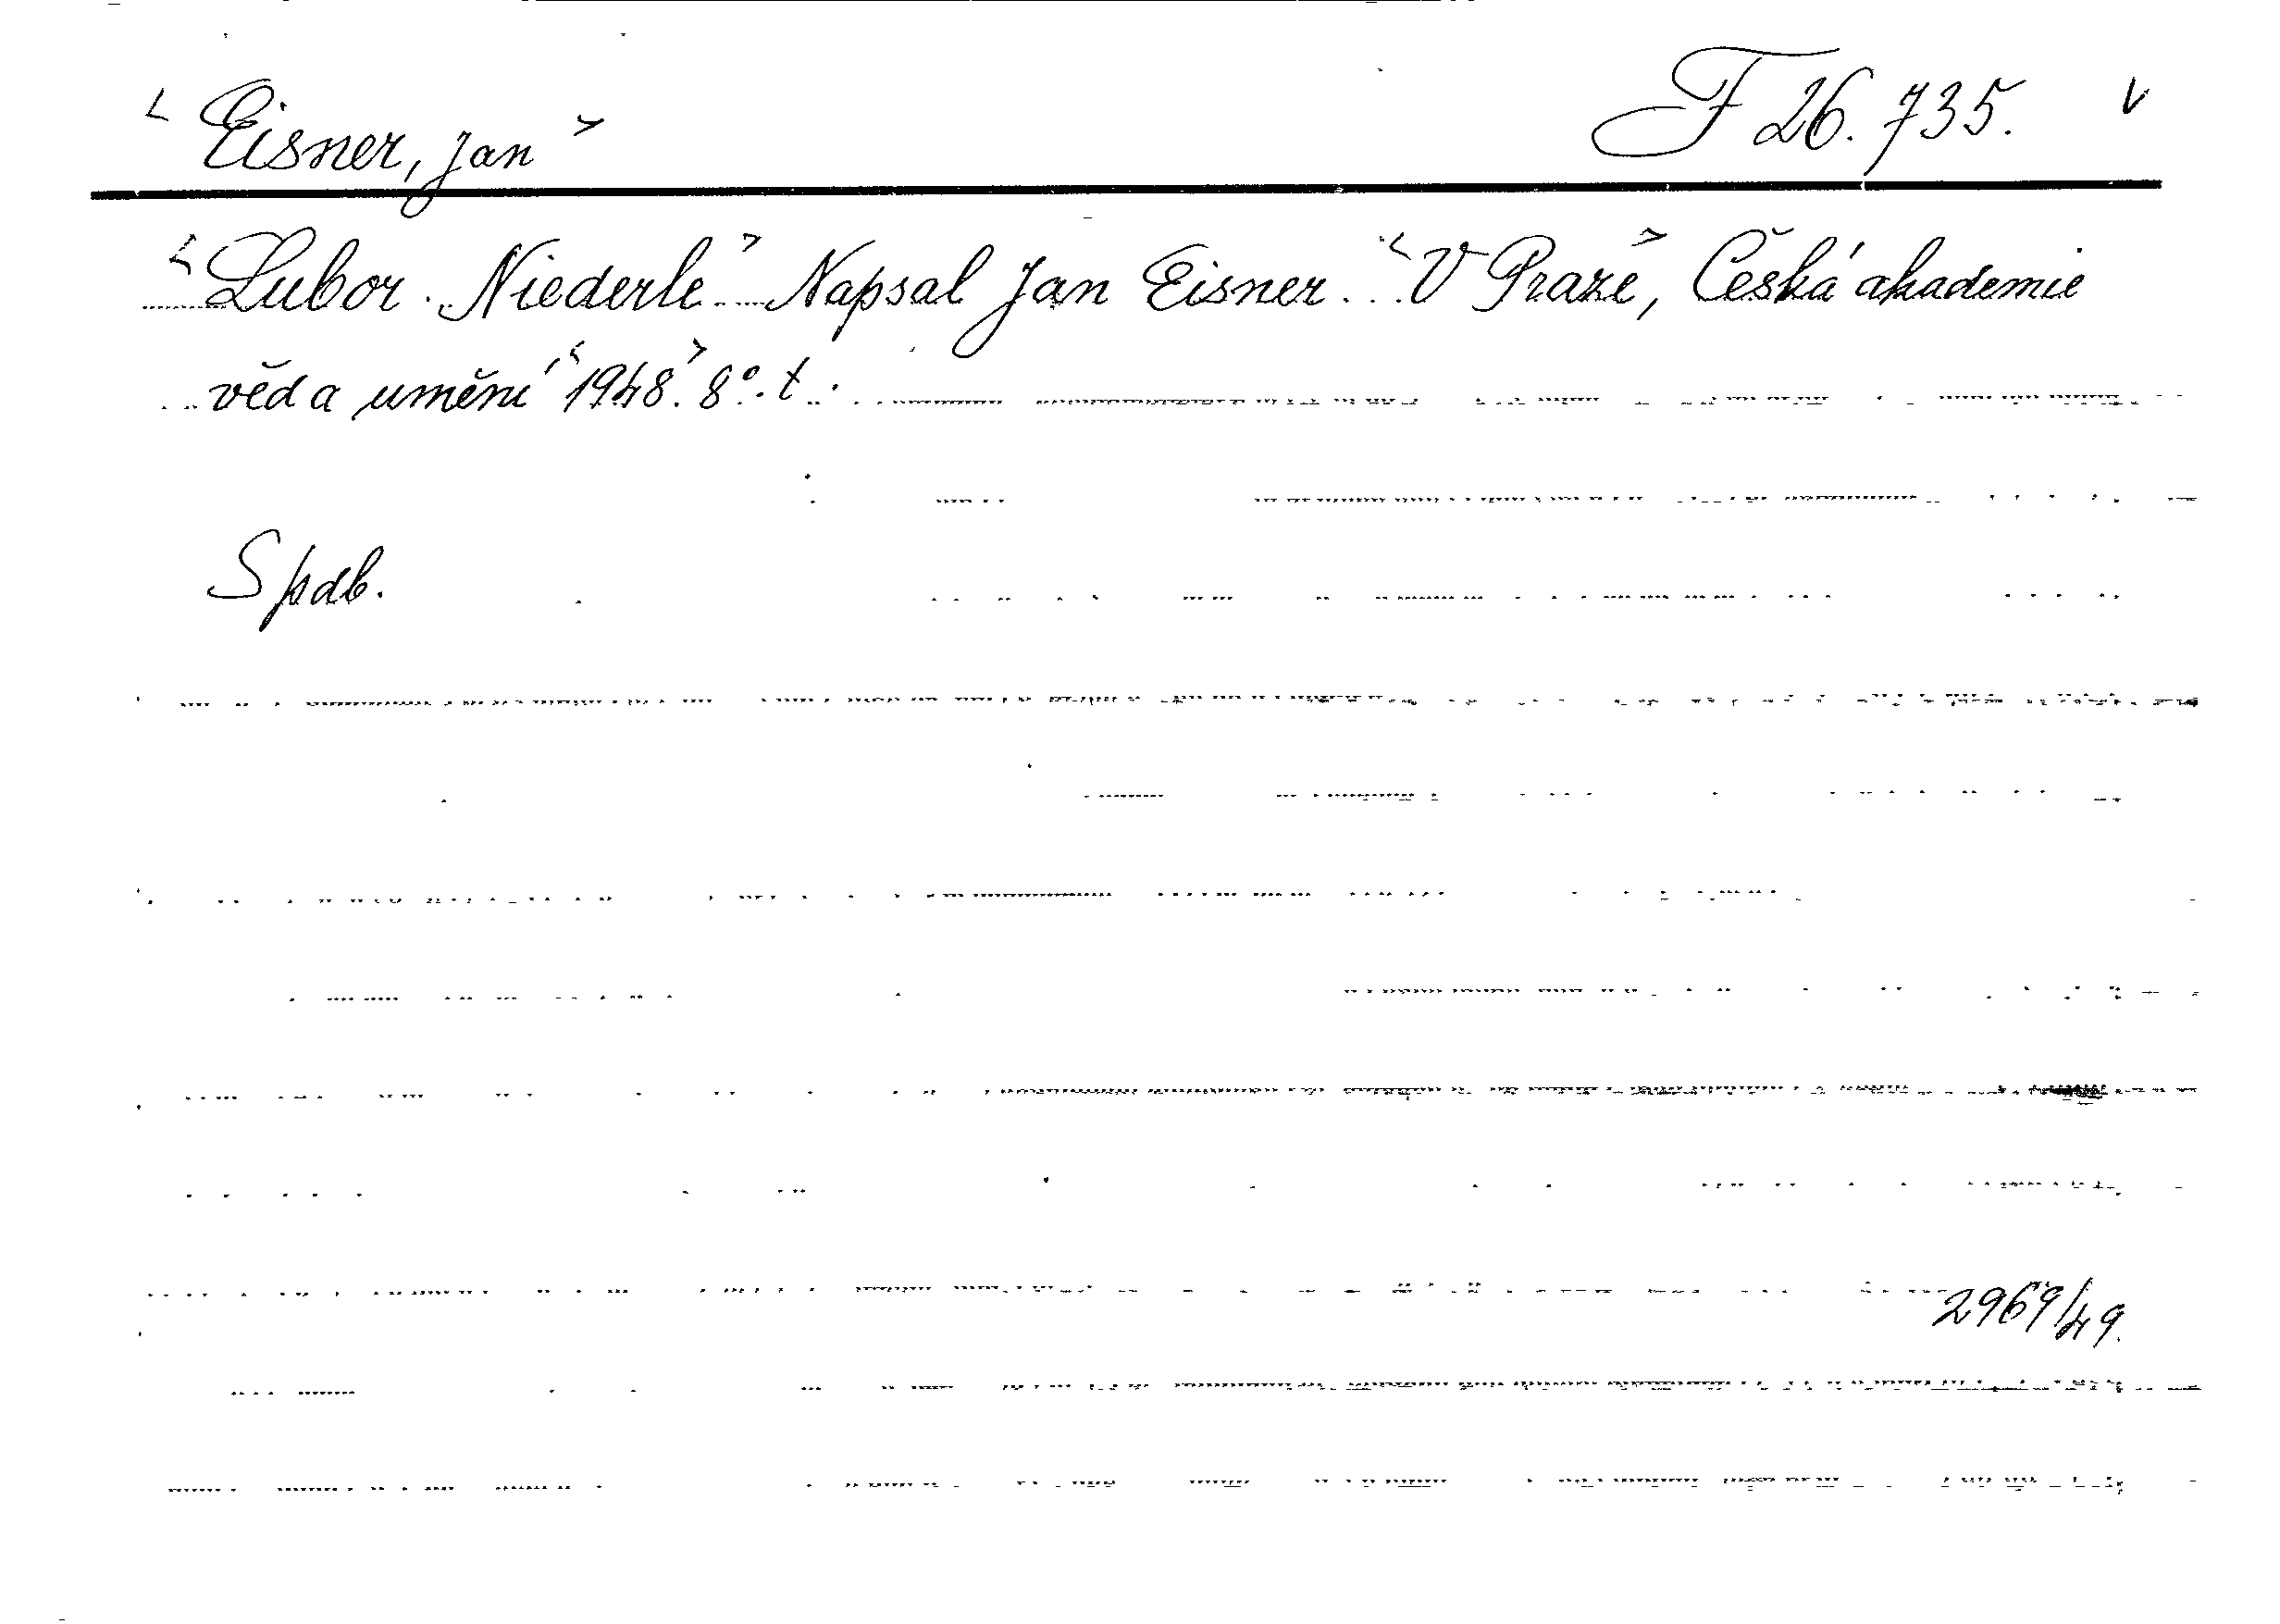 < Eisner, Jan > F 26.735. v
< Lubor Niederle. > Napsal Jan Eisner. < V Praze >, Česká akademie
věd a umění < 1948. > 8°. t.
Spdb.
2969/49.